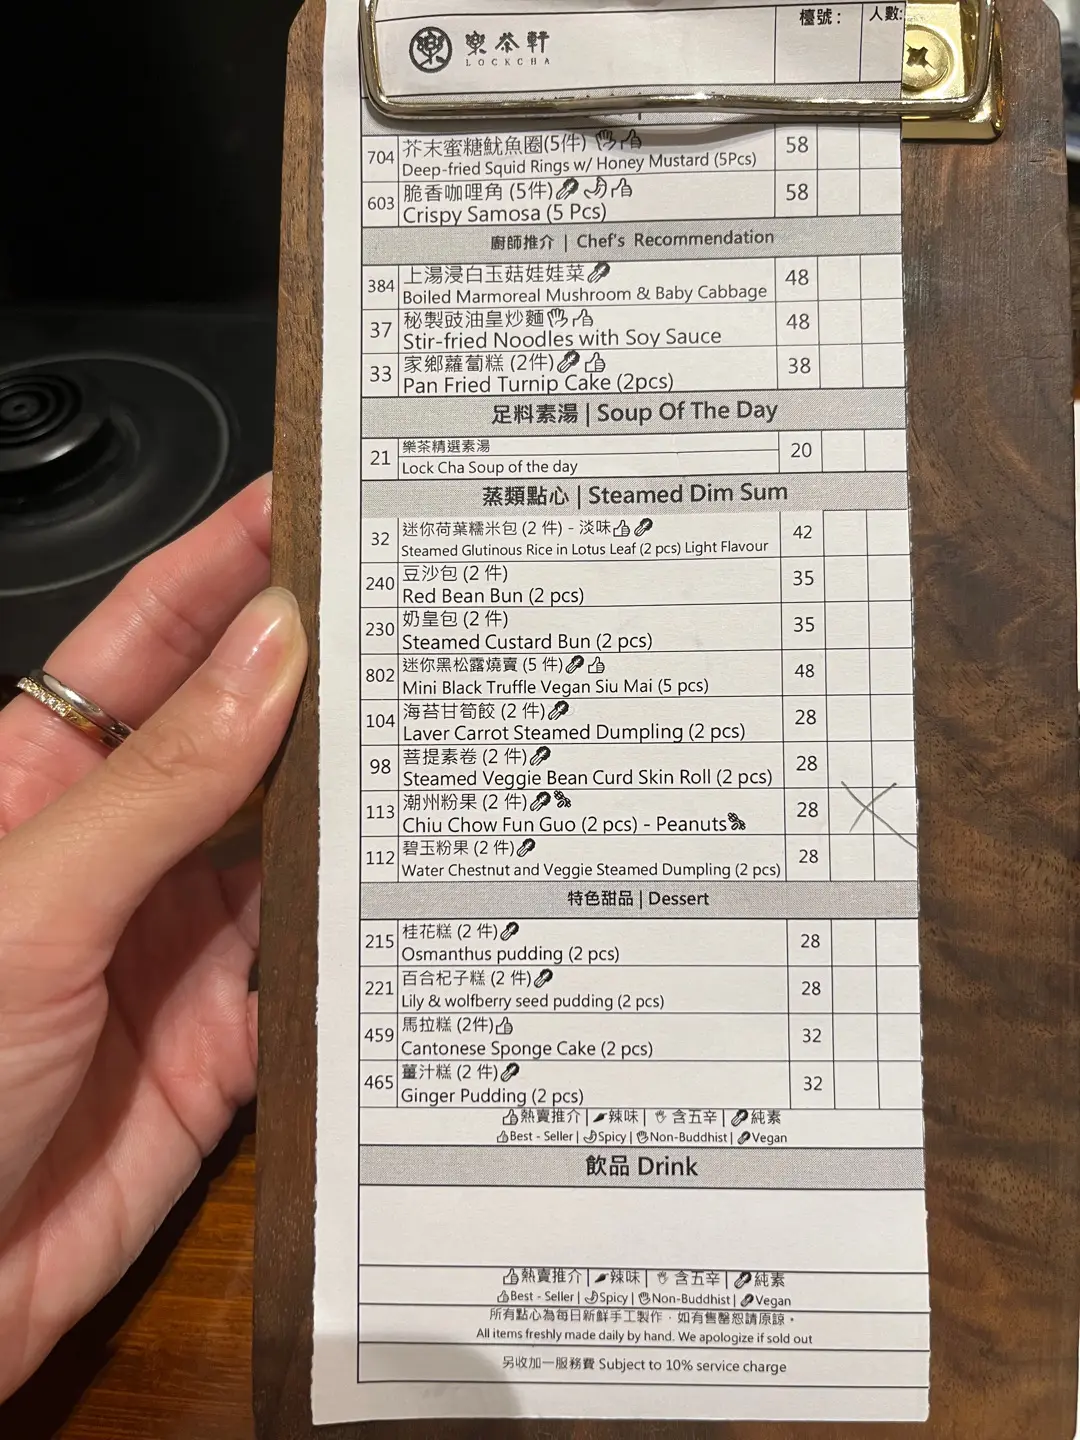 樂茶軒
LOCKCHA
檯號：
人數:
704 芥末蜜糖魷魚圈(5件) 58
Deep-fried Squid Rings w/ Honey Mustard (5Pcs)
603 脆香咖哩角 (5件) 58
Crispy Samosa (5 Pcs)
廚師推介 | Chef's Recommendation
384 上湯浸白玉菇娃娃菜 48
Boiled Marmoreal Mushroom & Baby Cabbage
37 秘製豉油皇炒麵 48
Stir-fried Noodles with Soy Sauce
33 家鄉蘿蔔糕 (2件) 38
Pan Fried Turnip Cake (2pcs)
足料素湯 | Soup Of The Day
21 樂茶精選素湯 20
Lock Cha Soup of the day
蒸類點心 | Steamed Dim Sum
32 迷你荷葉糯米包 (2 件) - 淡味 42
Steamed Glutinous Rice in Lotus Leaf (2 pcs) Light Flavour
240 豆沙包 (2 件) 35
Red Bean Bun (2 pcs)
230 奶皇包 (2 件) 35
Steamed Custard Bun (2 pcs)
802 迷你黑松露燒賣 (5 件) 48
Mini Black Truffle Vegan Siu Mai (5 pcs)
104 海苔甘筍餃 (2 件) 28
Laver Carrot Steamed Dumpling (2 pcs)
98 菩提素卷 (2 件) 28
Steamed Veggie Bean Curd Skin Roll (2 pcs)
113 潮州粉果 (2 件) 28
Chiu Chow Fun Guo (2 pcs) - Peanuts
112 碧玉粉果 (2 件) 28
Water Chestnut and Veggie Steamed Dumpling (2 pcs)
特色甜品 | Dessert
215 桂花糕 (2 件) 28
Osmanthus pudding (2 pcs)
221 百合杞子糕 (2 件) 28
Lily & wolfberry seed pudding (2 pcs)
459 馬拉糕 (2件) 32
Cantonese Sponge Cake (2 pcs)
465 薑汁糕 (2 件) 32
Ginger Pudding (2 pcs)
熱賣推介 | 辣味 | 含五辛 | 純素
Best - Seller | Spicy | Non-Buddhist | Vegan
飲品 Drink
熱賣推介 | 辣味 | 含五辛 | 純素
Best - Seller | Spicy | Non-Buddhist | Vegan
所有點心為每日新鮮手工製作．如有售罄恕請原諒。
All items freshly made daily by hand. We apologize if sold out
另收加一服務費 Subject to 10% service charge